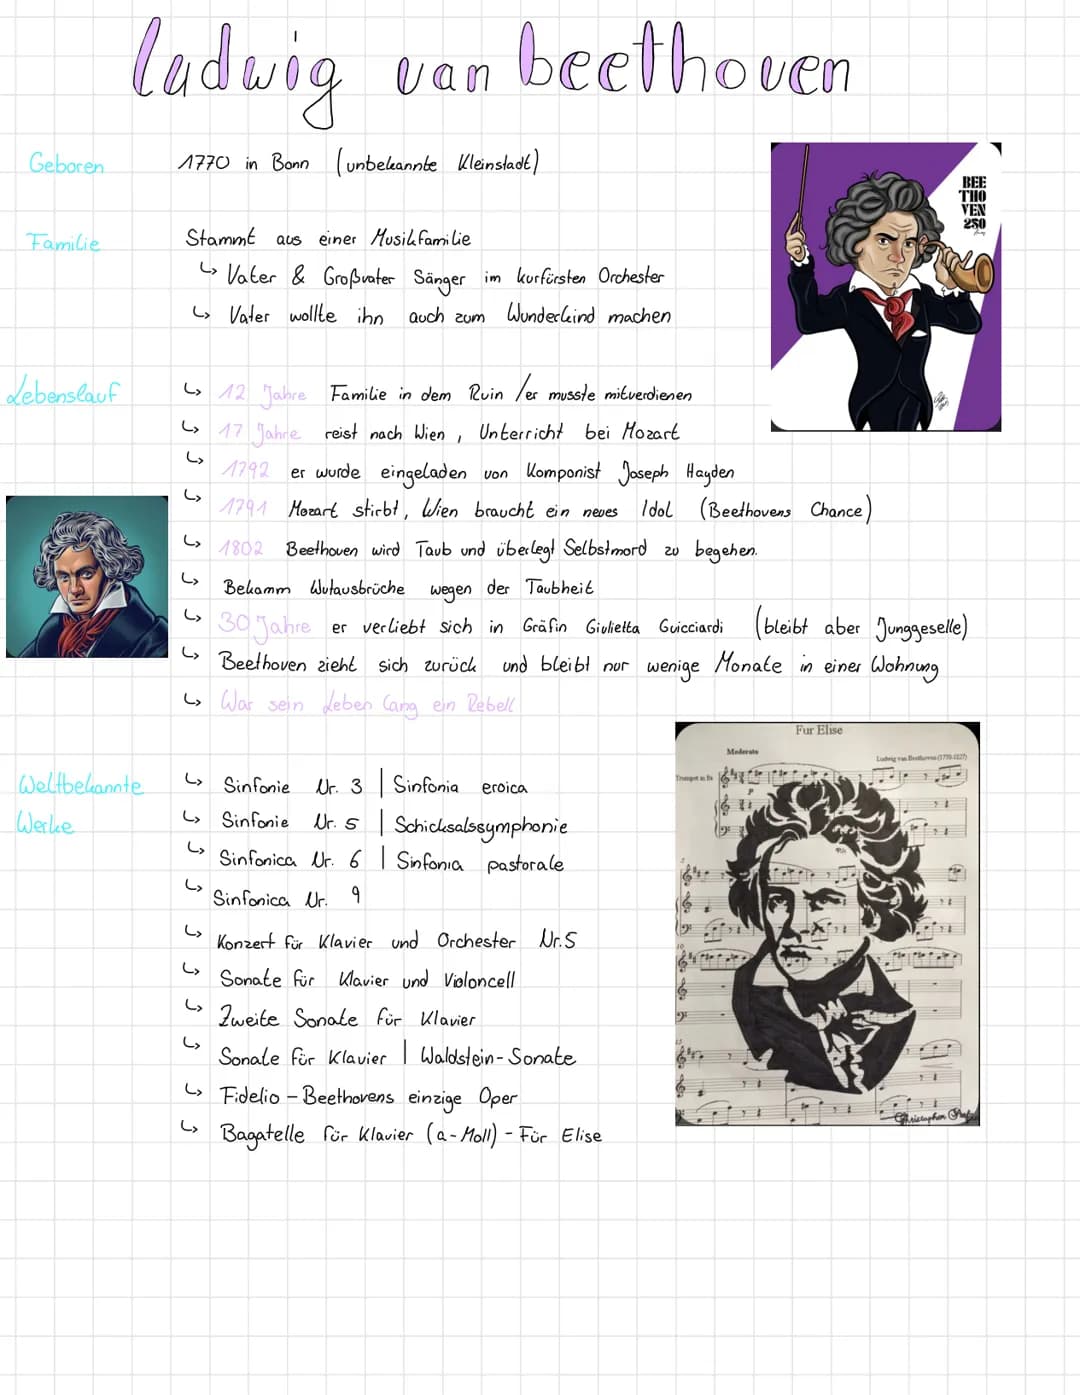 ludwig van beethoven
Geboren
1770 in Bonn (unbekannte Kleinstadt)
BEE
THO
VEN
250
Familie
Stammt aus einer Musikfamilie
↳ Vater & Großvater Sänger im kurfürsten Orchester
↳ Vater wollte ihn auch zum Wunderkind machen
Lebenslauf
↳ 12 Jahre Familie in dem Ruin / er musste mitverdienen
↳ 17 Jahre reist nach Wien, Unterricht bei Mozart
↳ 1792 er wurde eingeladen von Komponist Joseph Hayden
↳ 1791 Mozart stirbt, Wien braucht ein neues Idol (Beethovens Chance)
↳ 1802 Beethoven wird Taub und überlegt Selbstmord zu begehen.
↳ Bekamm Wutausbrüche wegen der Taubheit
↳ 30 Jahre er verliebt sich in Gräfin Giulietta Guicciardi (bleibt aber Junggeselle)
↳ Beethoven zieht sich zurück und bleibt nur wenige Monate in einer Wohnung
↳ War sein Leben lang ein Rebell
Weltbekannte
Werke
↳ Sinfonie Nr. 3 | Sinfonia eroica
↳ Sinfonie Nr. 5 | Schicksalssymphonie
↳ Sinfonica Nr. 6 | Sinfonia pastorale
↳ Sinfonica Nr. 9
↳ Konzert für Klavier und Orchester Nr. 5
↳ Sonate für Klavier und Violoncell
↳ Zweite Sonate für Klavier
↳ Sonate für Klavier | Waldstein-Sonate
↳ Fidelio – Beethovens einzige Oper
↳ Bagatelle für Klavier (a-Moll) – Für Elise
Fur Elise
Moderato
Ludwig van Beethoven (1770-1827)
Trumpet in
Christopher